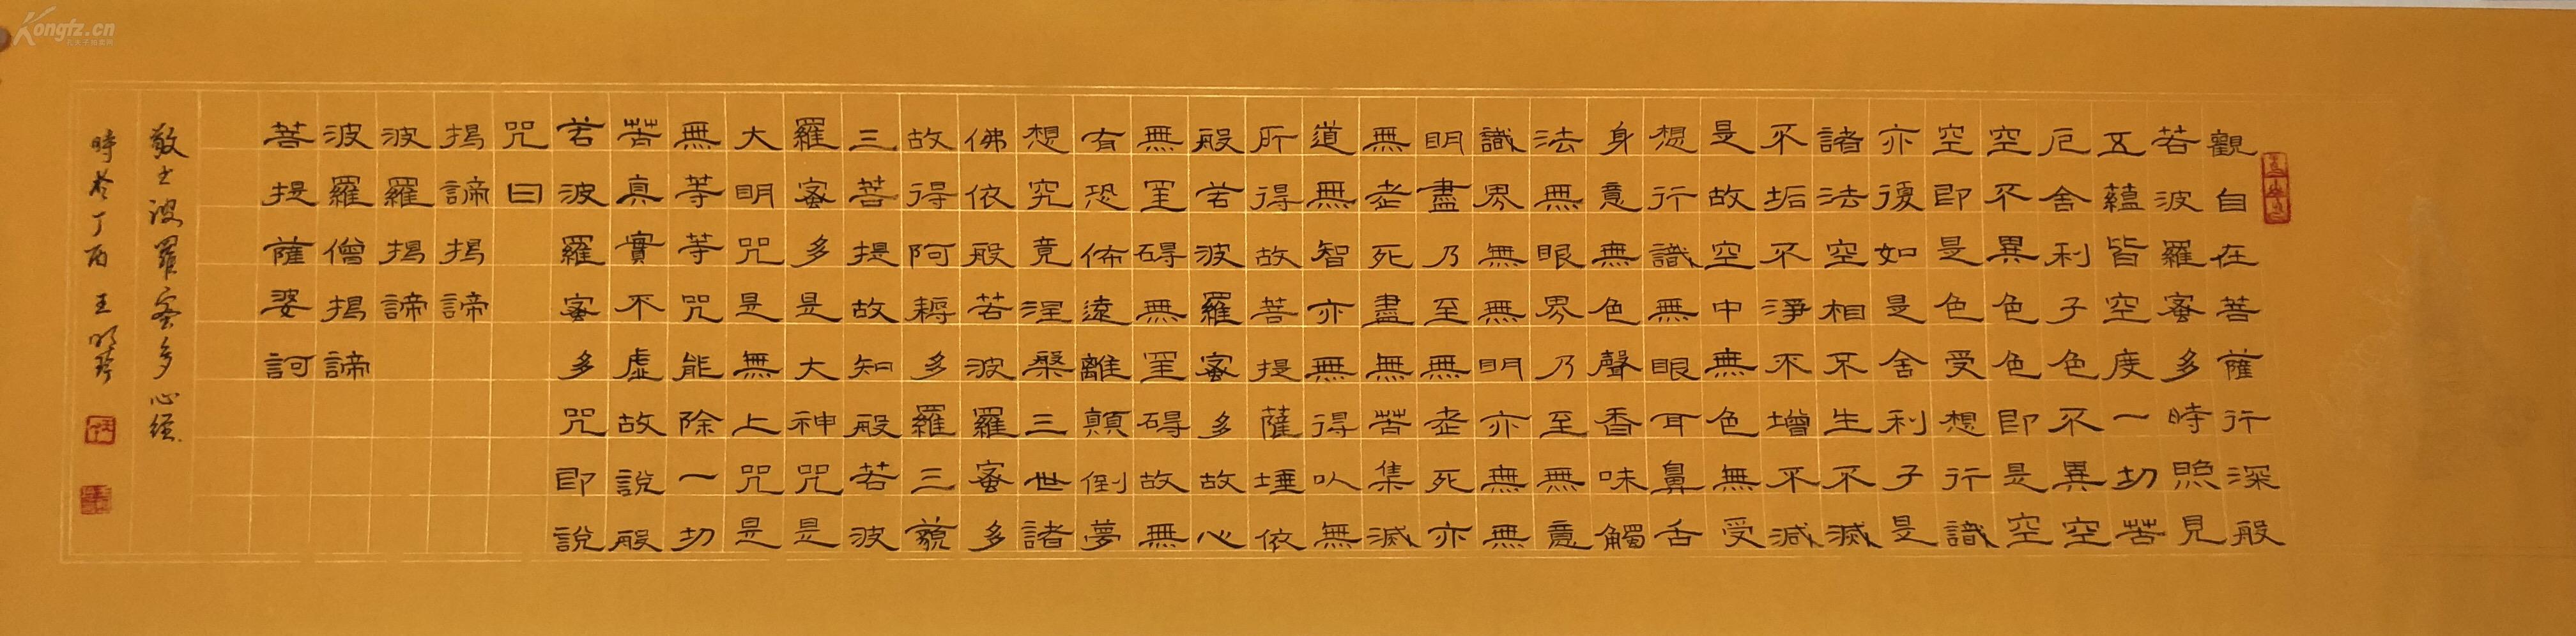 觀自在菩薩行深般
若波羅蜜多時照見
五蘊皆空度一切苦
厄舍利子色不異空
空不異色色即是空
空即是色受想行識
亦復如是舍利子是
諸法空相不生不滅
不垢不淨不增不減
是故空中無色無受
想行識無眼耳鼻舌
身意無色聲香味觸
法無眼界乃至無意
識界無無明亦無無
明盡乃至無老死亦
無老死盡無苦集滅
道無智亦無得以無
所得故菩提薩埵依
般若波羅蜜多故心
無罣碍無罣碍故無
有恐怖遠離顛倒夢
想究竟涅槃三世諸
佛依般若波羅蜜多
故得阿耨多羅三藐
三菩提故知般若波
羅蜜多是大神咒是
大明咒是無上咒是
無等等咒能除一切
苦真實不虛故說般
若波羅蜜多咒即說
咒曰
揭諦揭諦
波羅揭諦
波羅僧揭諦
菩提薩婆訶
敬書波羅蜜多心經
時於丁酉 王明
Kongfz.cn